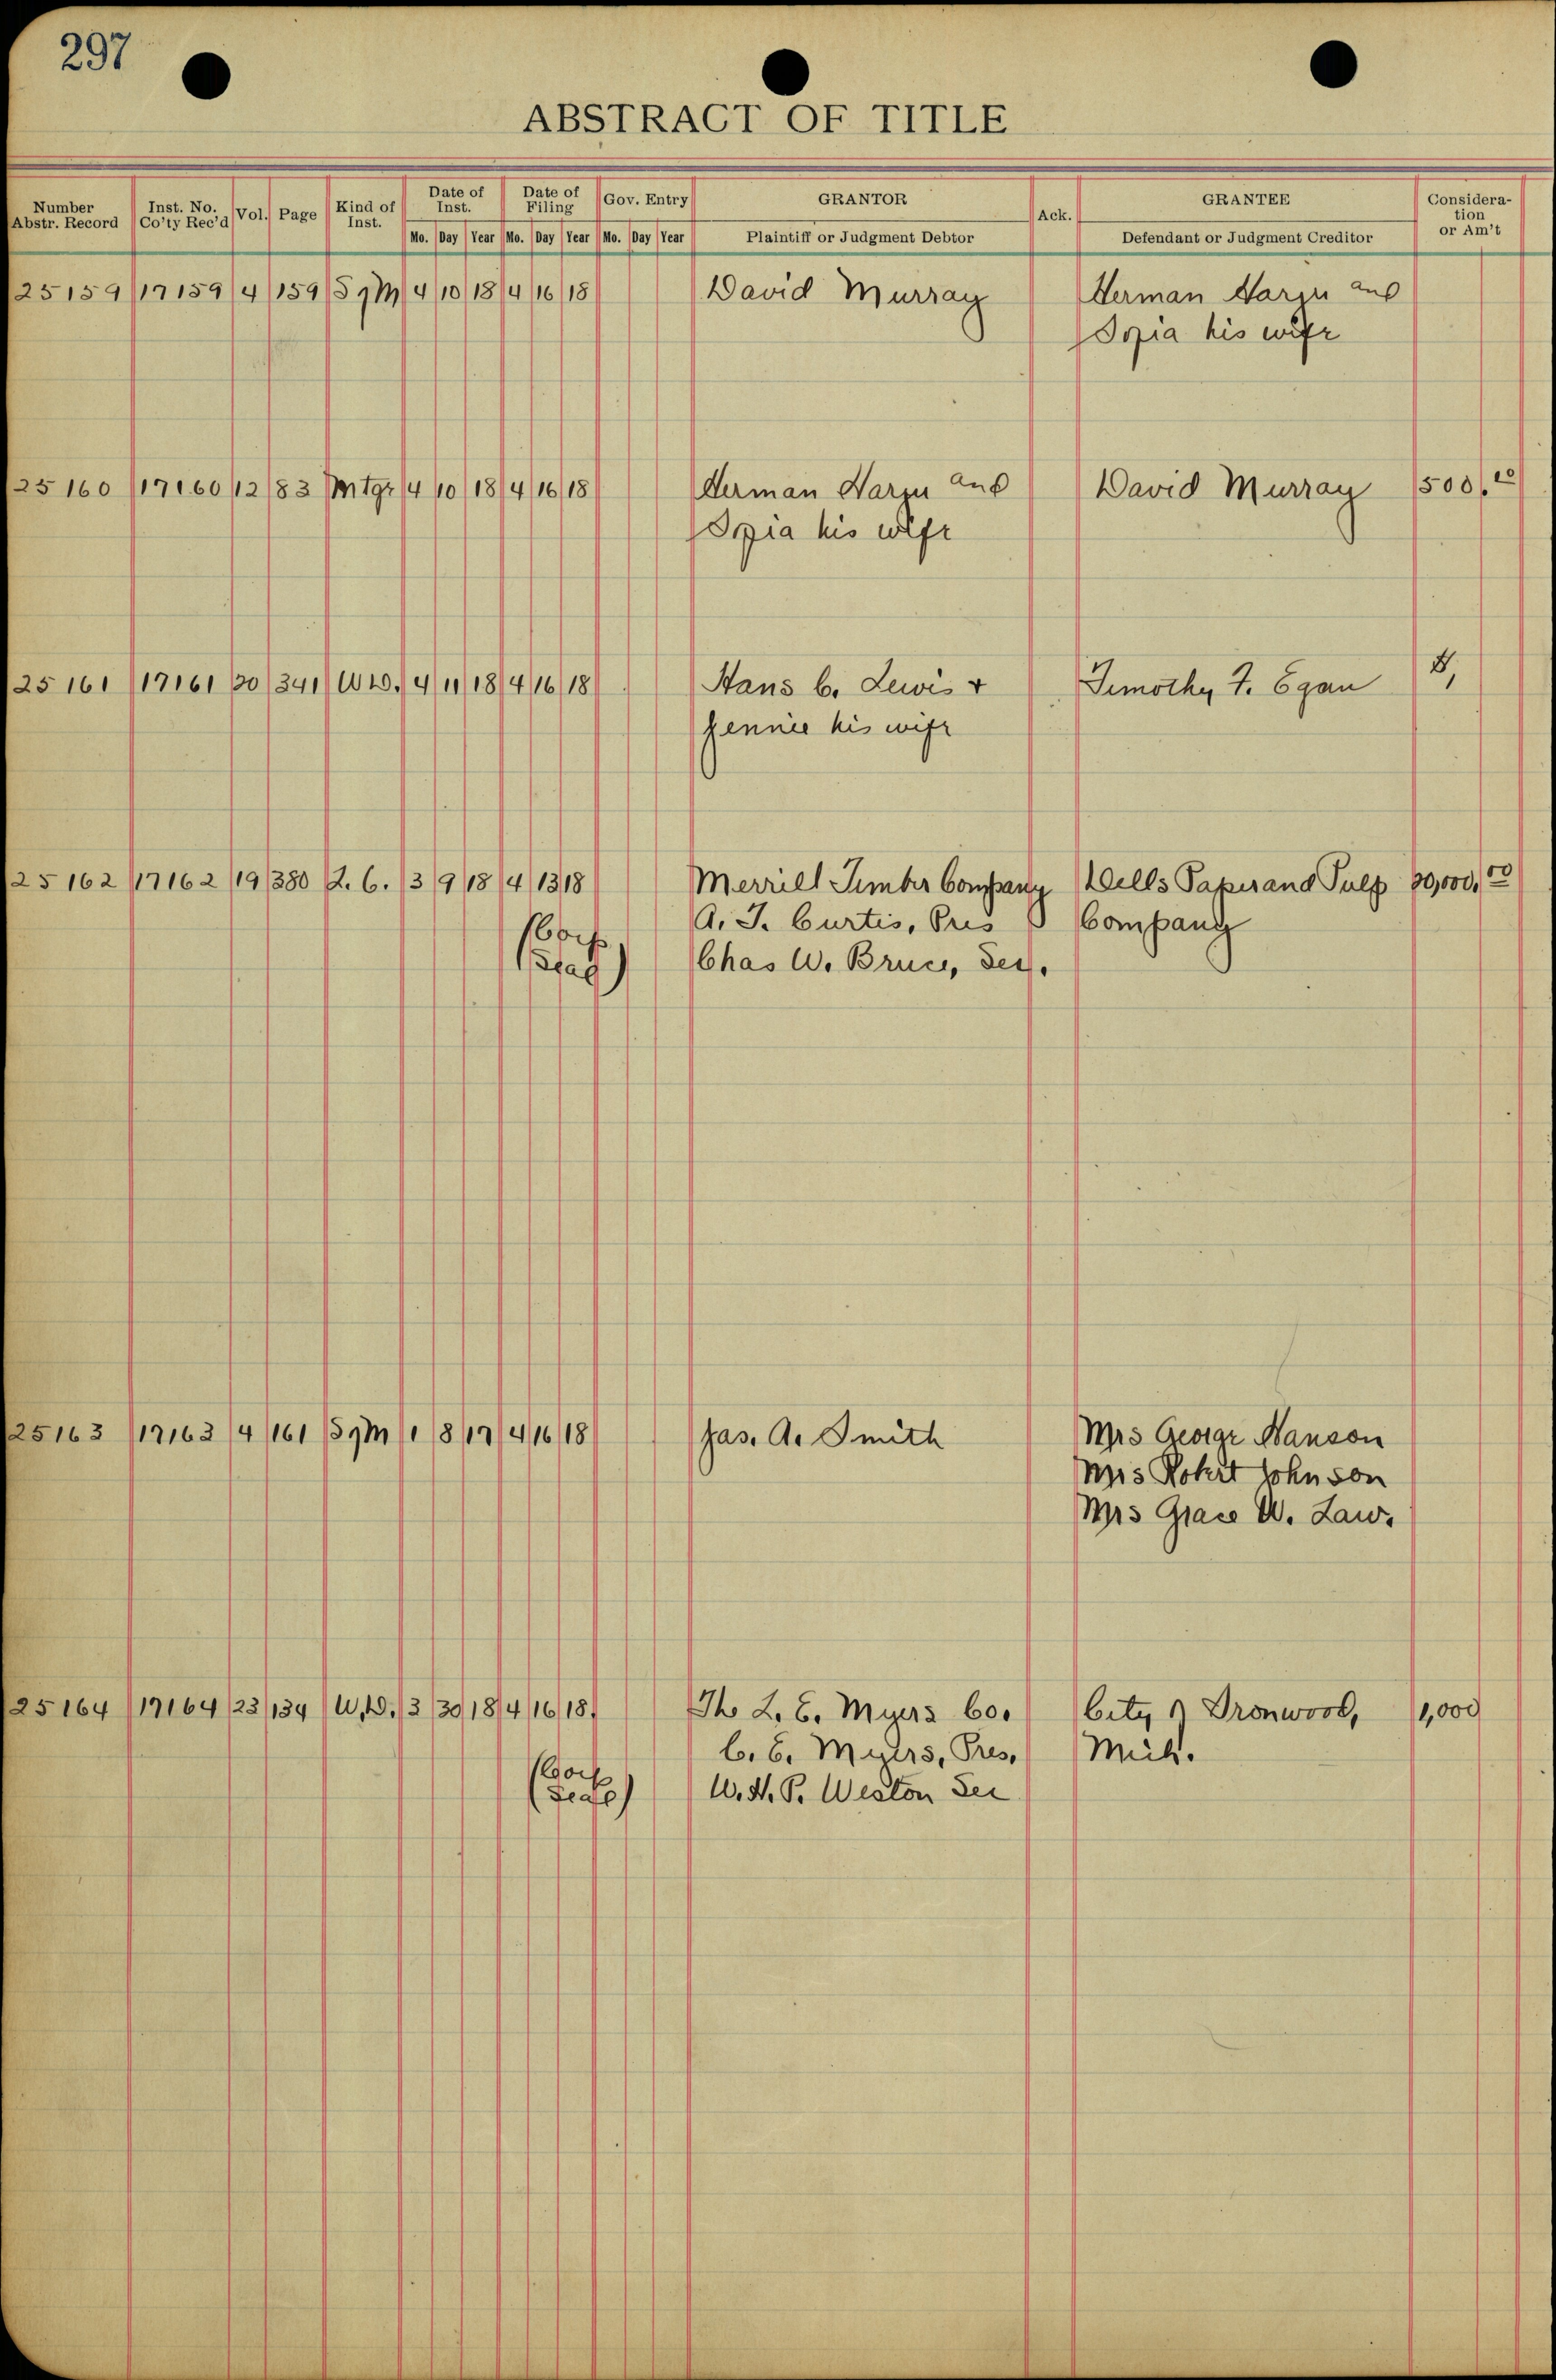 297
ABSTRACT OF TITLE
Number Abstr. Record Inst. No. Co'ty Rec'd Vol. Page Kind of Inst. Date of Inst. Date of Filing Gov. Entry GRANTOR Ack. GRANTEE Consideration or Am't
Mo. Day Year Mo. Day Year Mo. Day Year Plaintiff or Judgment Debtor Defendant or Judgment Creditor
25159 17159 4 159 S9M 4 10 18 4 16 18 David Murray Herman and
his wife
25160 17160 12 83 Mtge 4 10 18 4 16 18 Herman and David Murray 500.00
his wife
25161 17161 20 341 W.D. 4 11 18 4 16 18 Hans C. Lewis & Timothy F. Egan $1,
Jennie his wife
25162 17162 19 380 2. C. 3 9 18 4 13 18 Merrill Lumber Company Wells Paper and Pulp 00
(Corp A. J. Curtis, Pres Company
Seal) Chas W. Bruce, Sec.
25163 17163 4 161 S9M 1 8 17 4 16 18 Jas. A. Smith Mrs George Hanson
Mrs Robert Johnson
Mrs Grace W. Law.
25164 17164 23 134 W.D. 3 30 18 4 16 18 The L. E. Myers Co. City of Ironwood, 1,000
C. E. Myers, Pres. Mich.
(Corp
Seal) W. H. P. Weston Sec